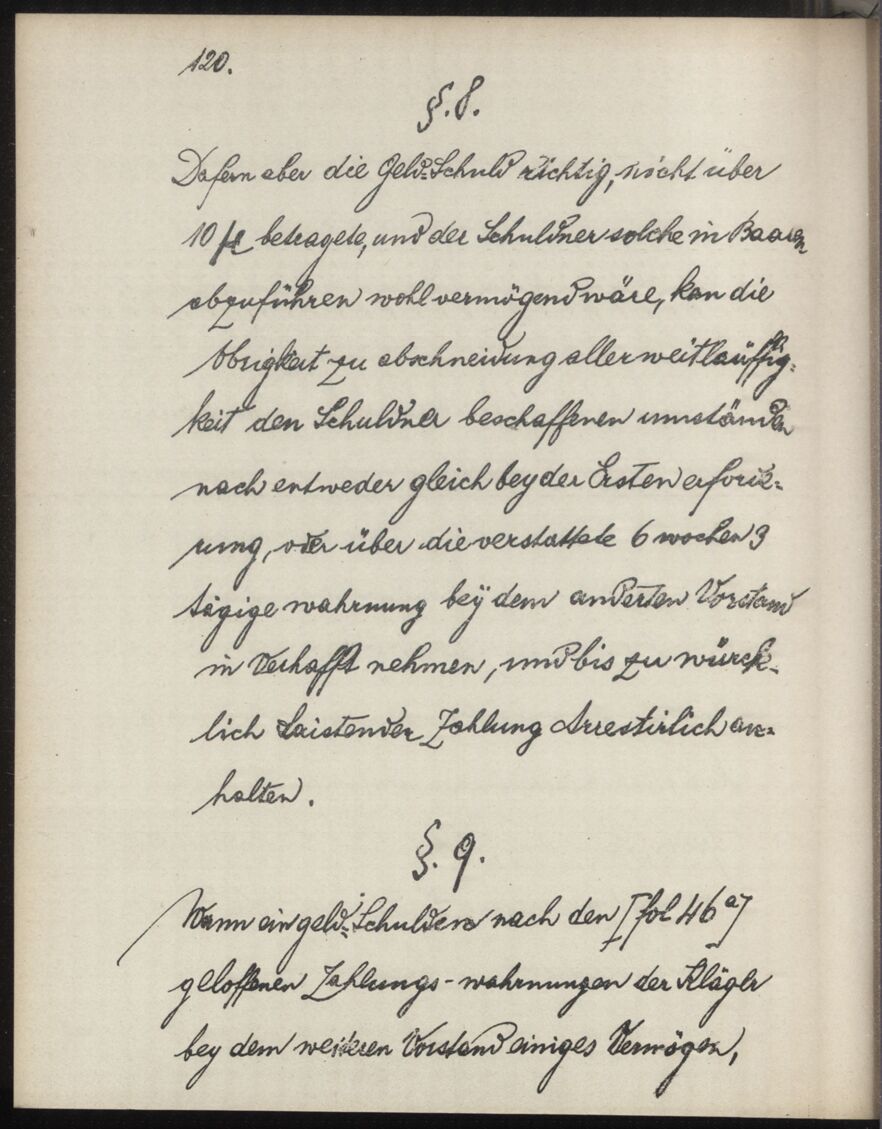 120.
§. 8.
Dafern aber die Geld-Schuld richtig, nicht über
10 betragete, und der Schuldner solche in Baaren
abzuführen wohl vermögend wäre, kan die
Obrigkeit zu abschneidung aller weitläuffig-
keit den Schuldner beschaffenen umständen
nach entweder gleich bey der Ersten erforde-
rung, oder über die verstattete 6 wochen 3
tägige wahrnung beÿ dem anderten Vorstand
in Verhafft nehmen, und bis zu würck-
lich Laistender Zahlung Arrestirlich an-
halten.
§. 9.
Wann ein geld-Schulden nach den [fol 46a]
geloffenen Zahlungs-wahrnungen der Kläger
bey dem weiteren Vorstand einiges Vermögen,